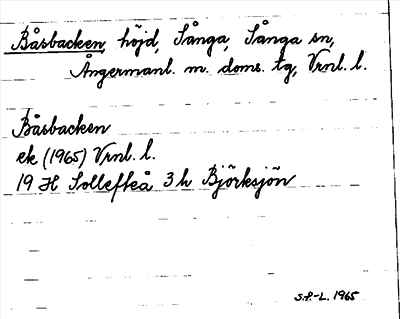 Båsbacken, höjd, Sånga, Sånga sn,
Ångermanl. m. doms. tg, Vrnl. l.
Båsbacken
ek (1965) Vrnl. l.
19 H Sollefteå 3 h Björksjön
S.P.-L. 1965